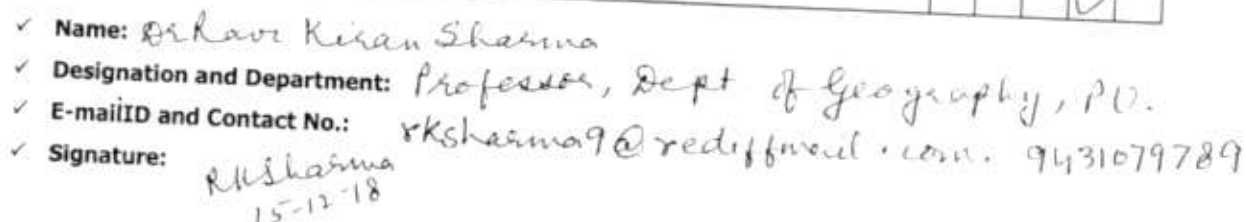 ✓ Name: Dr Ravi Kiran Sharma
✓ Designation and Department: Professor, Dept of Geography, PU.
✓ E-mailID and Contact No.: rksharma9@rediffmail.com. 9431079789
✓ Signature: RKSharma
15-12-18